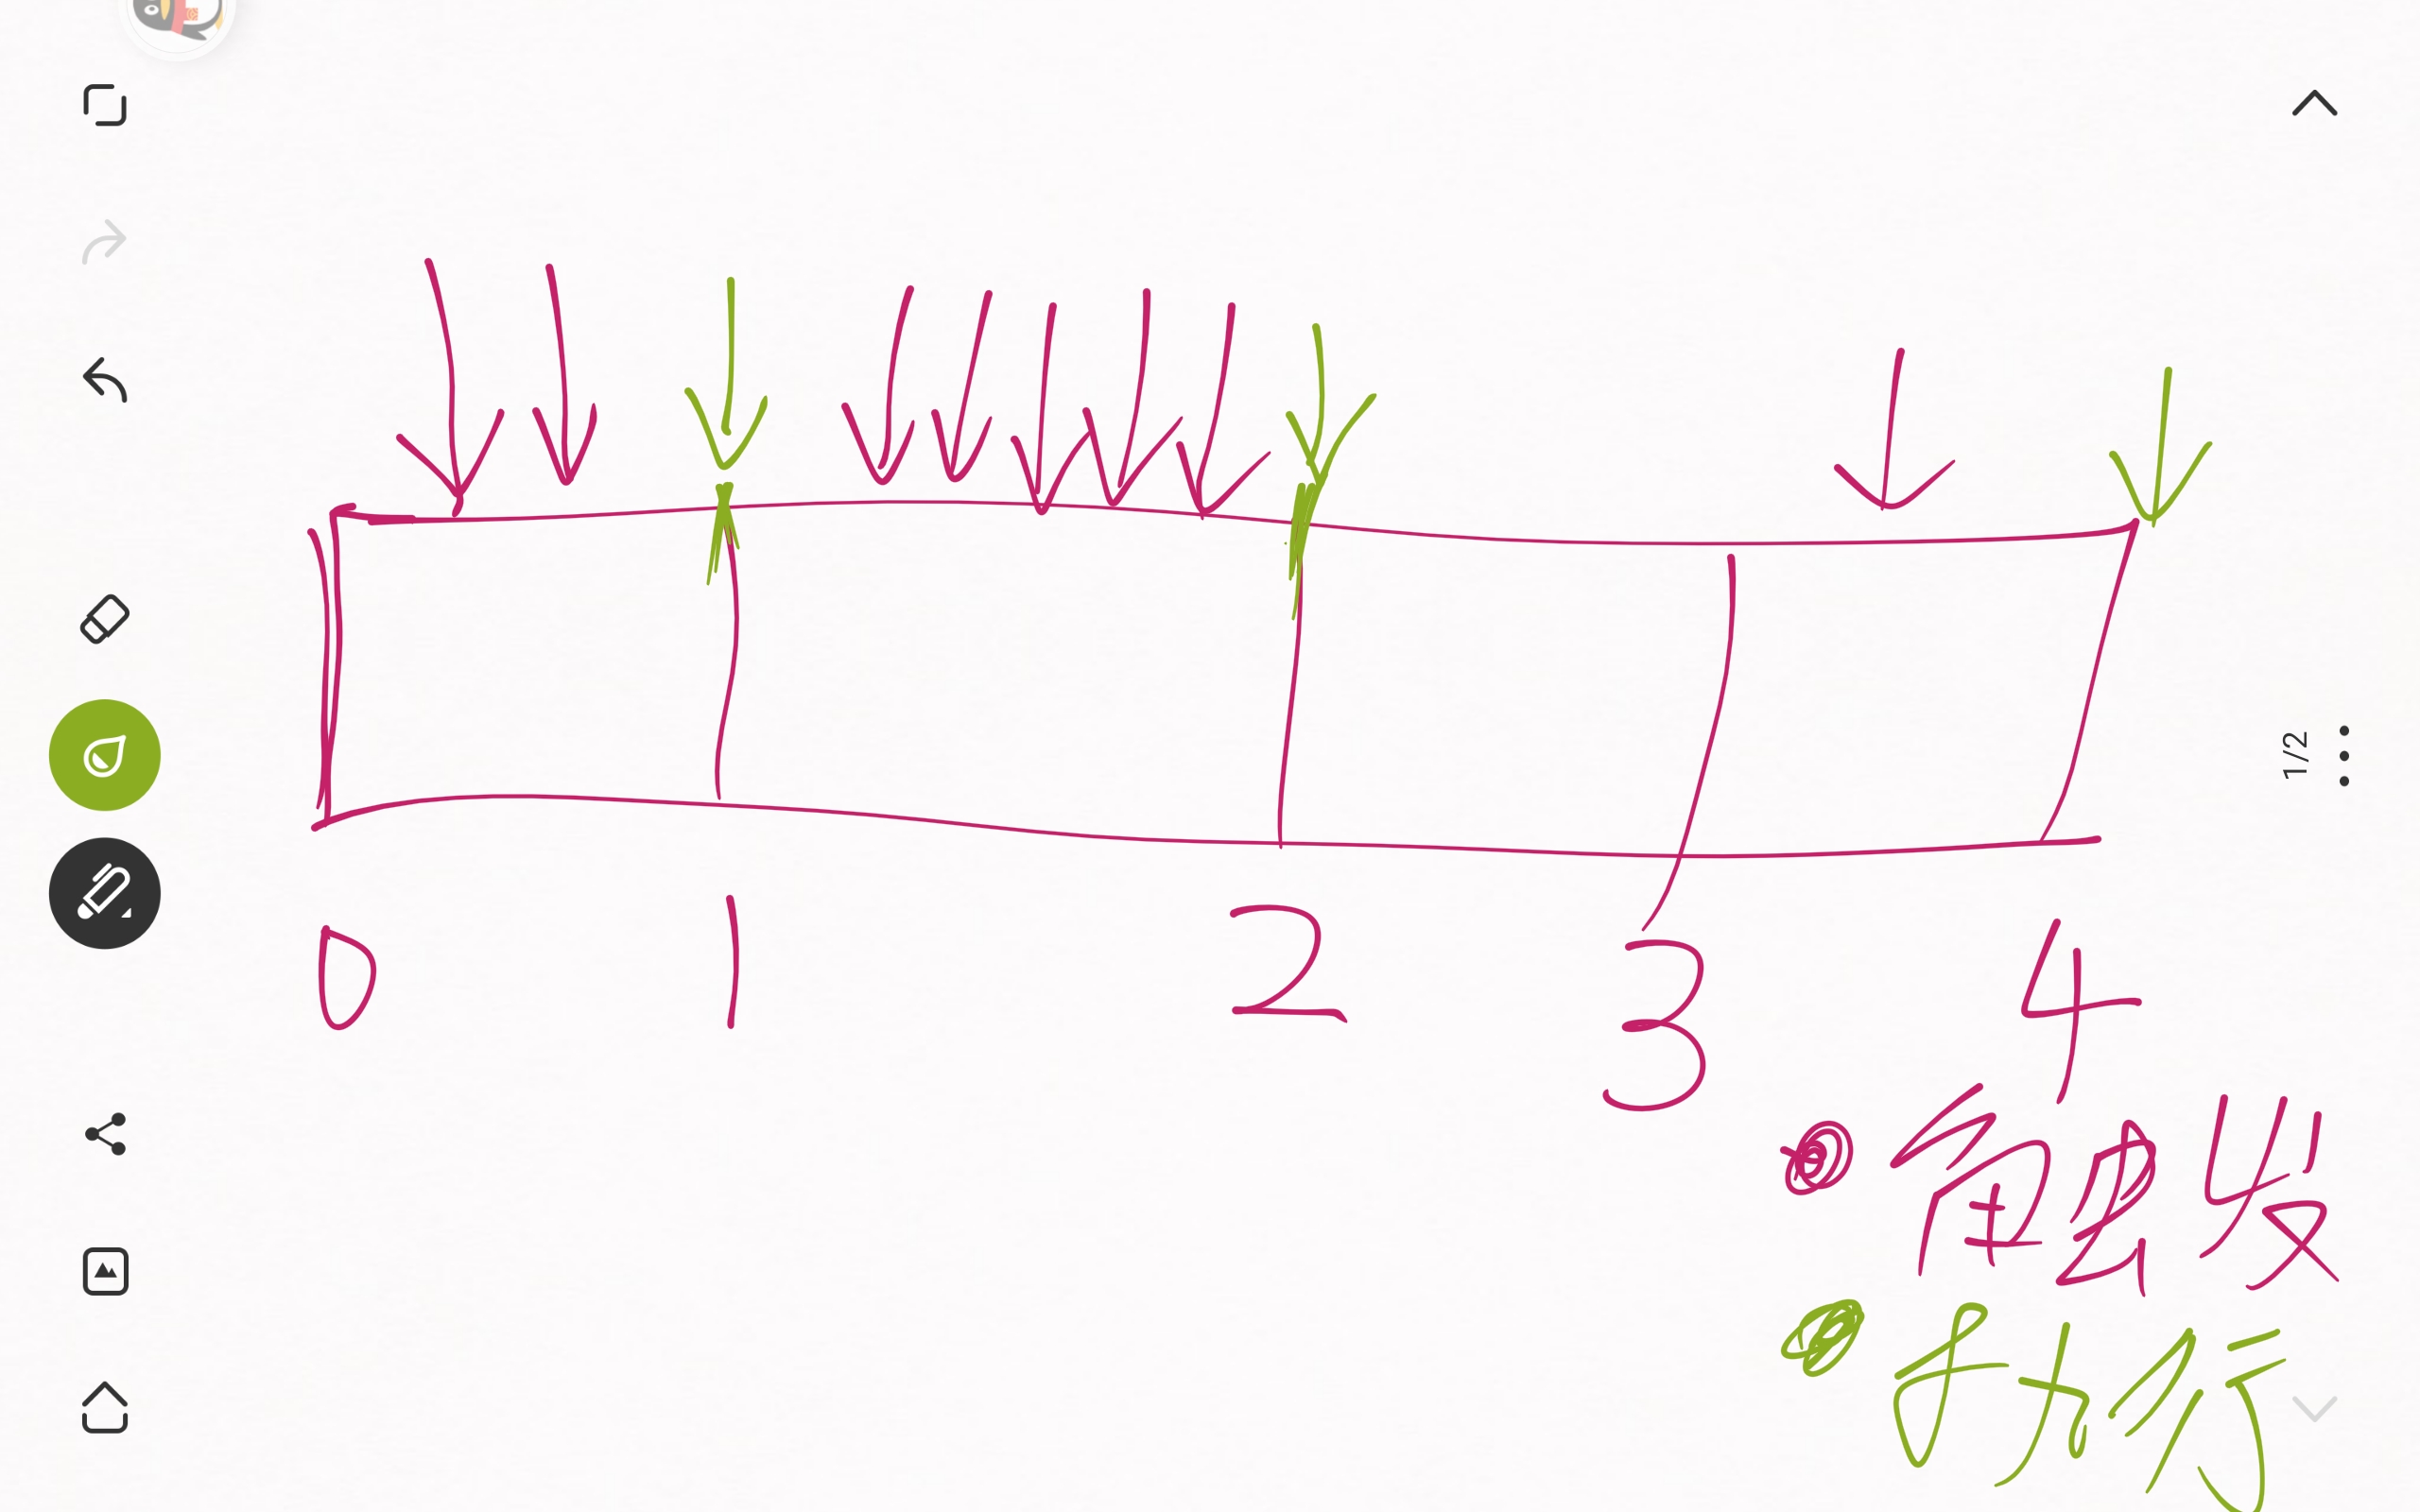 0 1 2 3 4
触发
执行
1/2